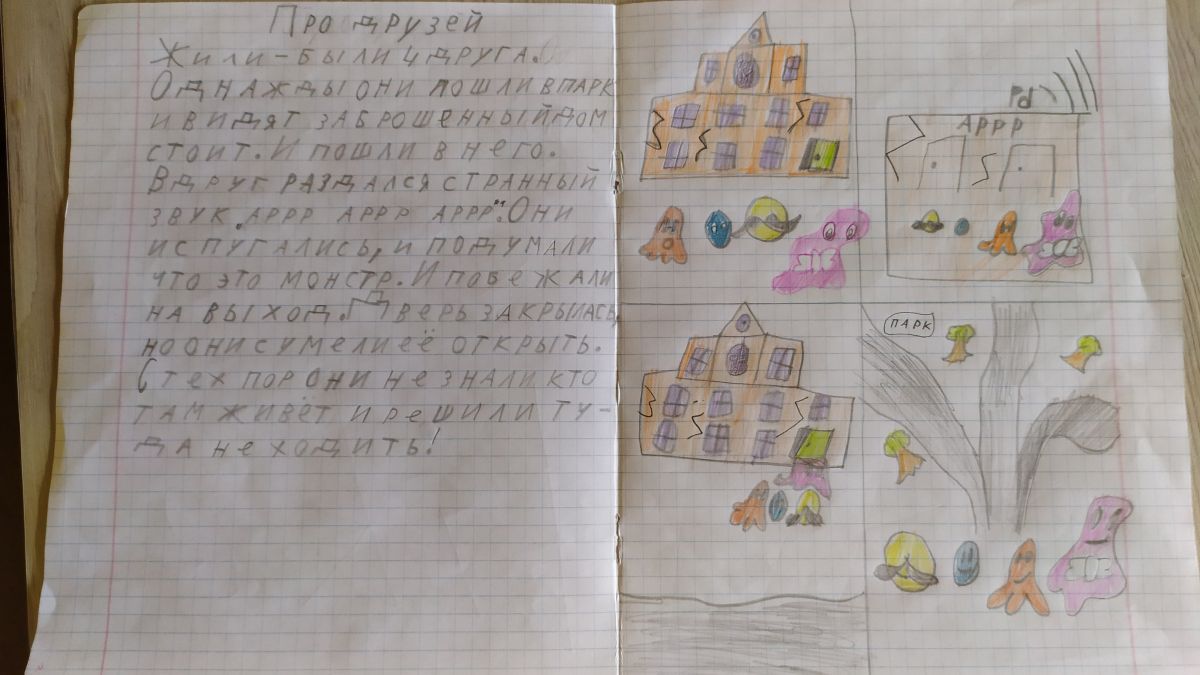 Про друзей
Жили-были 4 друга.
Однажды они пошли в парк
и видят заброшенный дом
стоит. И пошли в него.
Вдруг раздался странный
звук „аррр аррр аррр". Они
испугались, и подумали
что это монстр. И побежали
на выход. Дверь закрылась,
но они сумели её открыть.
С тех пор они не знали кто
там живёт и решили ту-
да не ходить!
АРРР
ПАРК